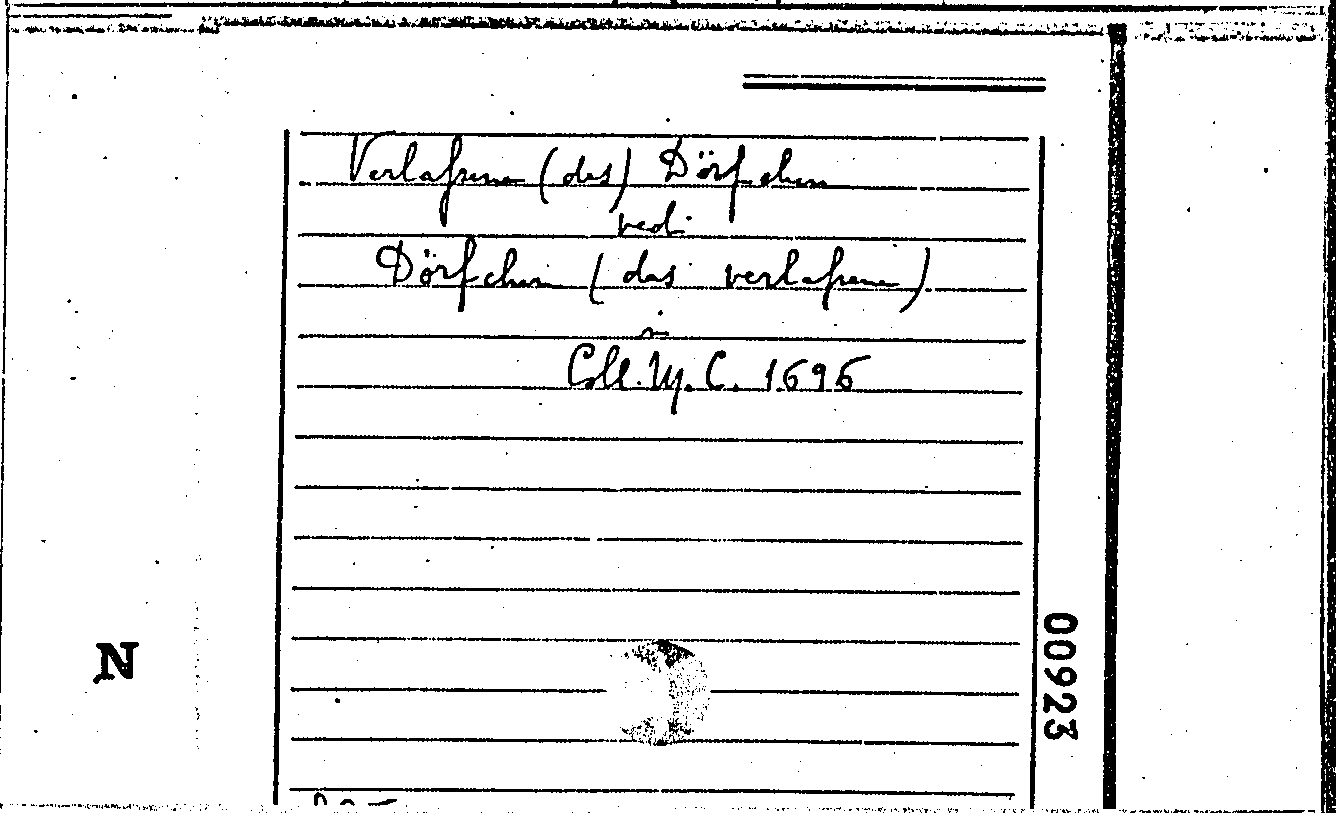 Verlaſsene (das) Dörfchen
vedi
Dörfchen (das verlaſsene)
in
Coll. M. C. 1696
N
00923